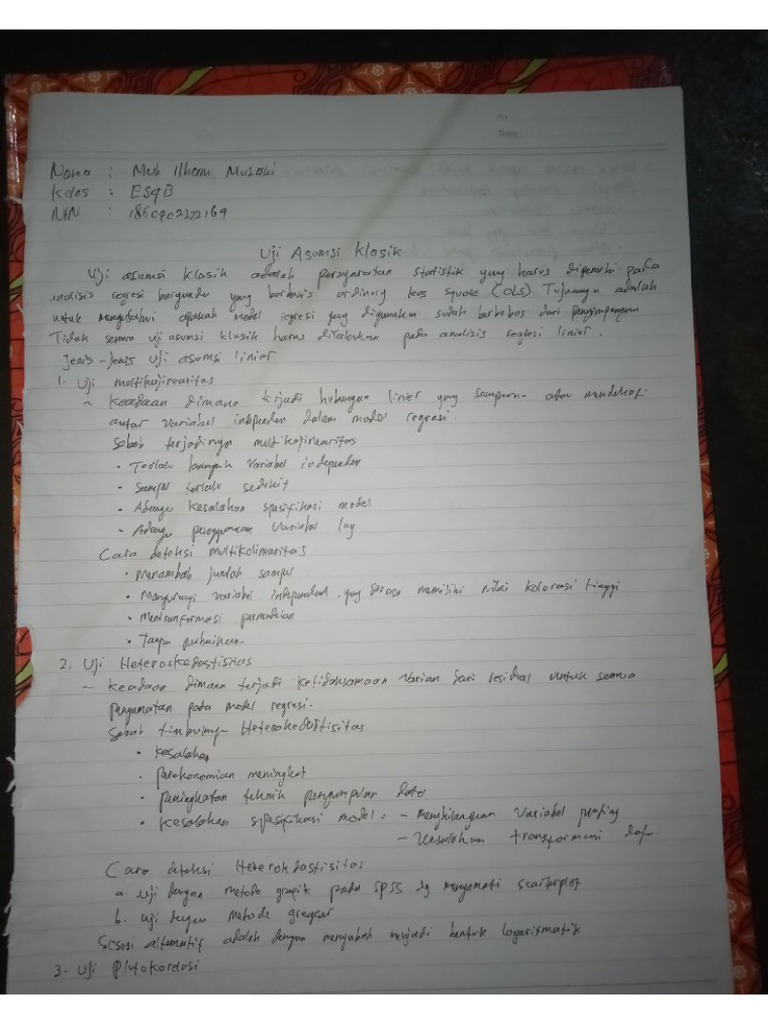 No
Date
Nama : Muh Ilham Muzaki
Kelas : ES4B
NIN : 1860902222169
Uji Asumsi Klasik
Uji asumsi klasik adalah persyaratan statistik yang harus dipenuhi pada
analisis regresi berganda yang berbasis ordinery leas square (OLS). Tujuannya adalah
untuk mengetahui apakah model regresi yang digunakan sudah berbebas dari penyimpangan
Tidak semua uji asumsi klasik harus dilakukan pada analisis regresi linier.
Jenis-Jenis Uji asumsi linier
1. Uji multikolinearitas
- Keadaan dimana terjadi hubungan linier yang sempurna atau mendekati
antar variabel independen dalam model regresi.
Sebab terjadinya multikolinearitas
• Terlalu banyak variabel independen
• Sampel terlalu sedikit
• Adanya kesalahan spesifikasi model
• Adanya penggunaan variabel lag
Cara deteksi multikolinearitas
• Menambah jumlah sampel
• Mengurangi variabel independen, yang memiliki nilai kolorasi tinggi
• Mentranformasi
• Tanpa perbaikan
2. Uji Heteroskedastisitas
- Keadaan dimana terjadi ketidaksamaan varian dari residual untuk semua
pengamatan pada model regresi.
Sebab timbulnya Heterokedistisitas
• Kesalahan
• Perekonomian meningkat
• Peningkatan teknik pengumpulan data
• Kesalahan spesifikasi model: - menghilangkan variabel penting
- Kesalahan transformasi data.
Cara deteksi Heterokdastisitas
a. Uji dengan metode grafik pada SPSS dg mengamati scatterplot
b. Uji dengan metode
alternatif adalah dengan mengubah menjadi bentuk logaritmatik
3. Uji